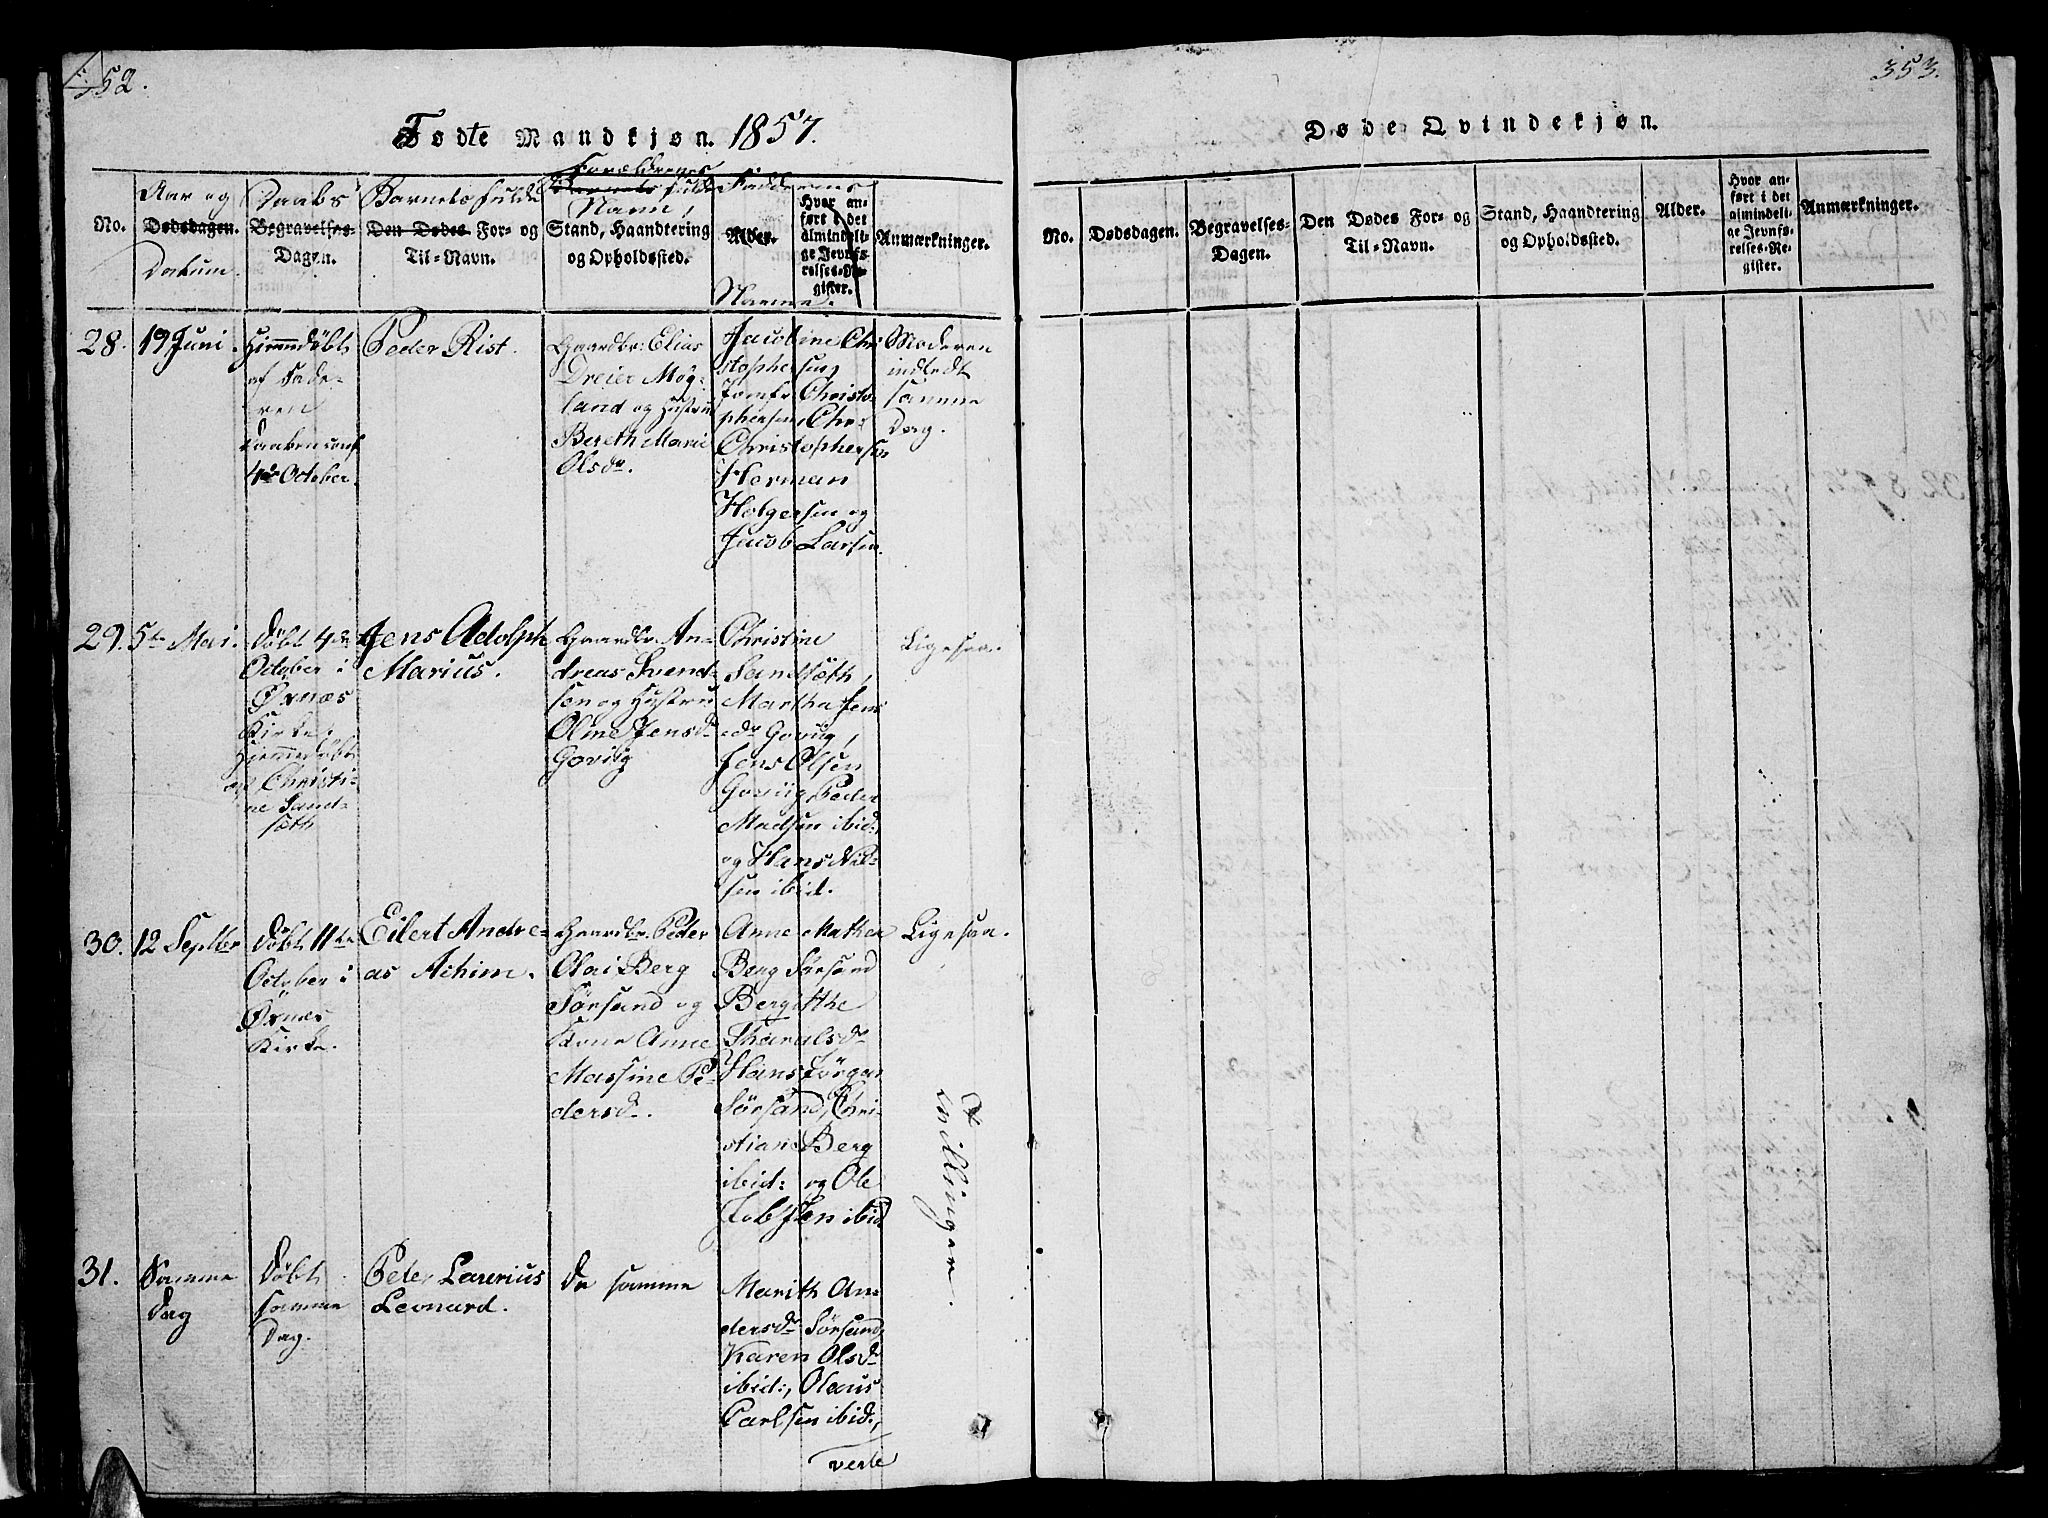 352.
Fødte Mandkjøn. 1857.
No.
Aar og
Dødsdagen.
Datum.
Daabs
Begravelses-
Dagen.
Barnets fulde
Den Dødes For- og
Til-Navn.
Forældrenes
Barnets fulde
Navn,
Stand, Haandtering
og Opholdssted.
Faddernes
Alder.
Hvor an-
ført i det
almindeli-
ge Jevnfø-
relses-Re-
gister.
Navne.
Anmærkninger.
28.
19 Juni.
Hjemmdöbt
af Fade-
ren
Daaben conf.
4de October.
Peder Rist.
Gaardbr: Elias
Dreier Møg-
land og Hustru
Bereth Marie
Olsdr.
Jacobine Chri
stophersen,
Jomfr Christo-
phersen, Chr:
Christophersen
Herman
Holgersen og
Jacob Larsen.
Moderen
indledt
samme
Dag.
29.
5te Mai.
Döbt 4de
October i
Øxnæs
Kirke.
Hjemmedöbt
af Christi-
ne Sand-
sæth
Jens Adolph
Marius.
Gaardbr. An-
dreas Svend-
sen og Hustru
Oline Jensdr
Goviig
Christine
Sandsæth,
Martha Jens
dr Goviig,
Jens Olsen
Goviig, Peder
Madsen ibid:
og Hans Nil-
sen ibid.
Ligesaa.
30.
12 Septbr
Döbt 11te
October i
Øxnes
Kirke.
Eilert Andre-
as Achim.
Gaardbr. Peder
Olai Berg
Sörsand og
Kone Anne
Massine Pe-
dersdr.
Anne Mathea
Berg Sörsand
Bergitthe
Tharalsdr
Hans Jörgen
Sörsand, Chri-
stiane Berg
ibid: og Ole
Jobsen ibid
Ligesaa.
Tvillinger.
31.
Samme
Dag
Döbt
samme
Dag.
Peter Laurius
Leonard.
De samme
Marith An-
dersdr Sörsand,
Karen Olsdr
ibid:, Olaus
Carlsen ibid:,
verte
353.
Døde Qvindekjøn.
No.
Dødsdagen.
Begravelses-
Dagen.
Den Dødes For- og
Til-Navn.
Stand, Haandtering
og Opholdssted.
Alder.
Hvor an-
ført i det
almindeli-
ge Jevnfø-
relses-Re-
gister.
Anmærkninger.